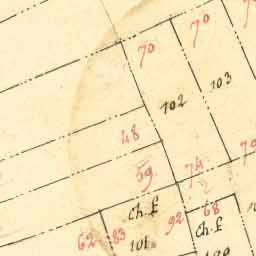 70
70
103
102
48
59
74
70
ch. f
92
68
62
83
ch. f
101